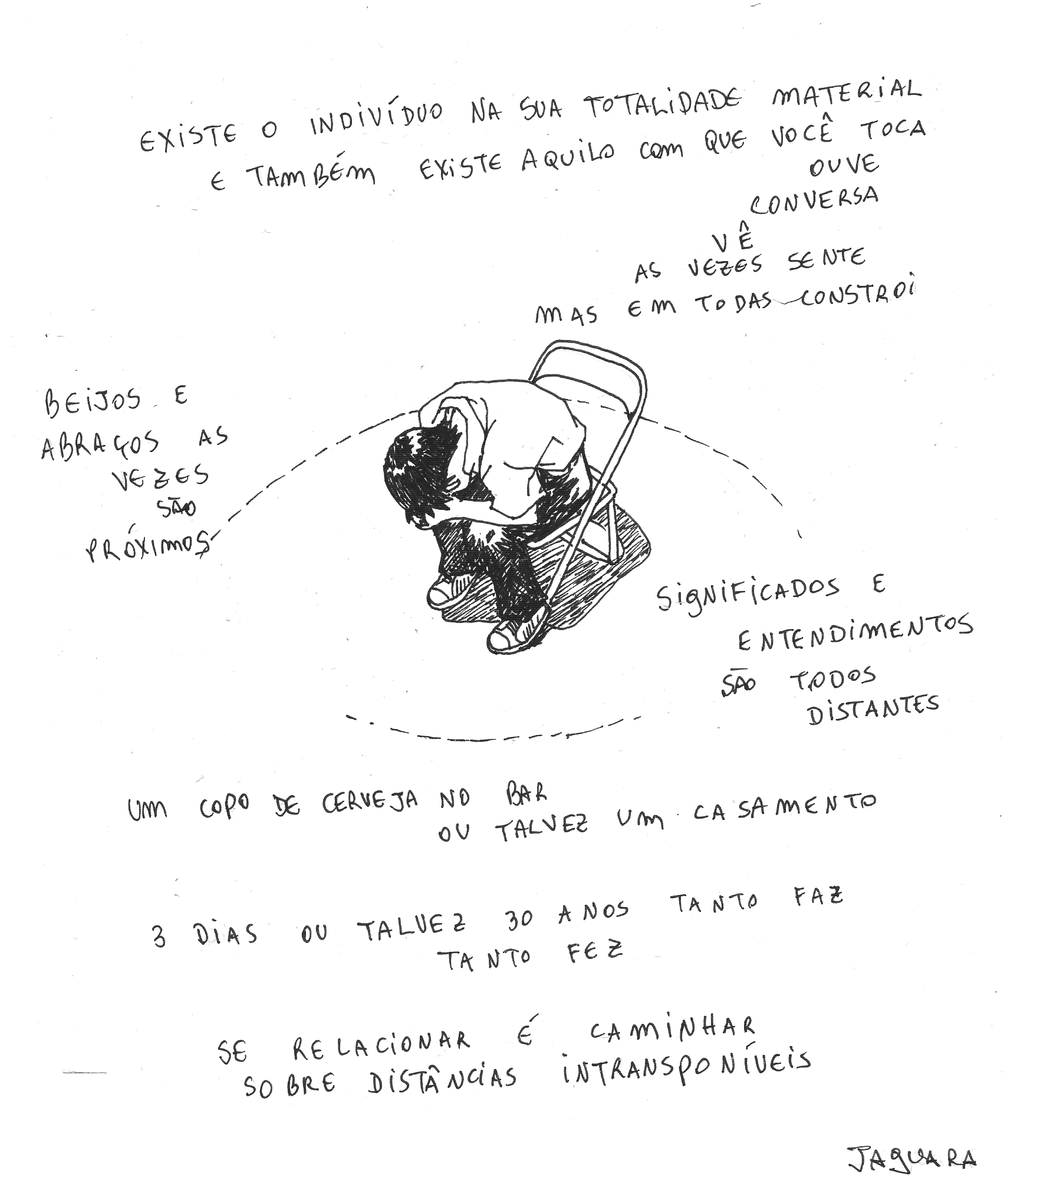 EXISTE O INDIVÍDUO NA SUA TOTALIDADE MATERIAL
E TAMBÉM EXISTE AQUILO COM QUE VOCÊ TOCA
OUVE
CONVERSA
VÊ
AS VEZES SENTE
MAS EM TODAS CONSTROI
BEIJOS E
ABRAÇOS AS
VEZES
SÃO
PRÓXIMOS
SIGNIFICADOS E
ENTENDIMENTOS
SÃO TODOS
DISTANTES
UM COPO DE CERVEJA NO BAR
OU TALVEZ UM CASAMENTO
3 DIAS OU TALVEZ 30 ANOS TANTO FAZ
TANTO FEZ
SE RELACIONAR É CAMINHAR
SOBRE DISTÂNCIAS INTRANSPONÍVEIS
JAGUARA